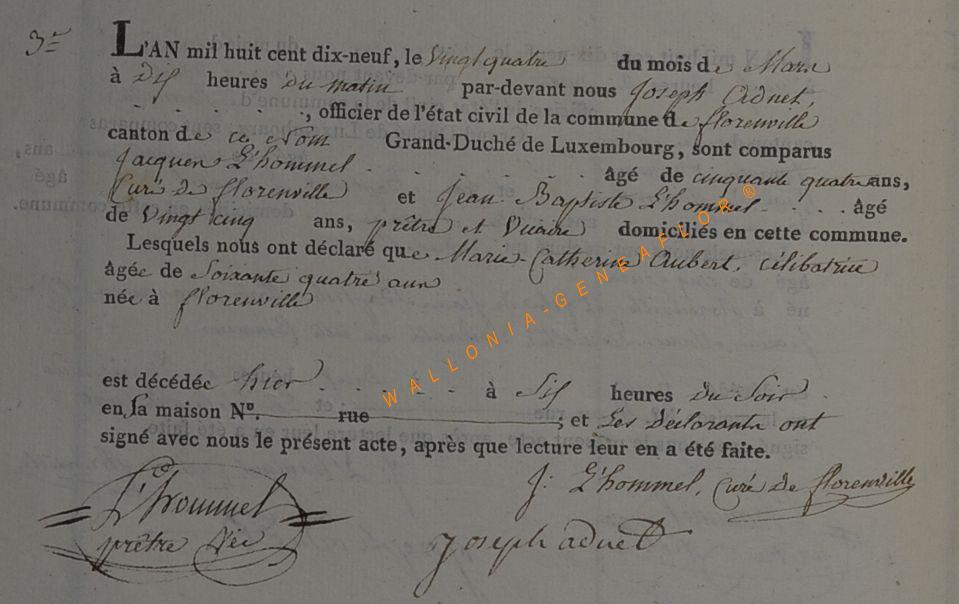 3e
L'AN mil huit cent dix-neuf, le vingt quatre du mois de Mars
à dix heures du matin par-devant nous Joseph Adnet,
, officier de l'état civil de la commune de florenville
canton de ce Nom Grand-Duché de Luxembourg, sont comparus
Jacques L'hommel . . . . . âgé de cinquante quatre ans,
Curé de florenville et Jean Baptiste L'hommel . . . . âgé
de vingt cinq ans, prêtre et Vicaire domiciliés en cette commune.
Lesquels nous ont déclaré que Marie-Catherine Aubert, célibatrice
âgée de soixante quatre ans
née à florenville
est décédée hier . . . . . à six heures du Soir
en sa maison No. rue ; et Les Déclarants ont
signé avec nous le présent acte, après que lecture leur en a été faite.
J: L'hommel, curé de florenville
L'hommel
prêtre vic
Joseph adnet
WALLONIA-GENEAFLOR®